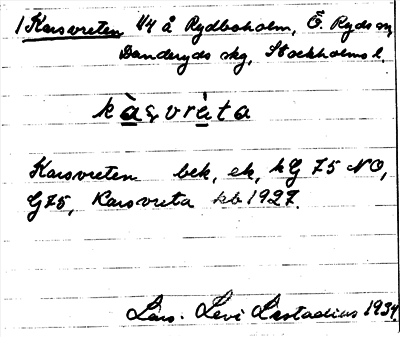 1 Karsvreten 1/4 å Rydboholm, Ö. Ryds sn,
Danderyds skg, Stockholms l.
kàṣvrèta
Karsvreten bek, ek, hG 75 NO,
G75, Karsvreta kb 1927.
Lars. Levi Læstadius 1934